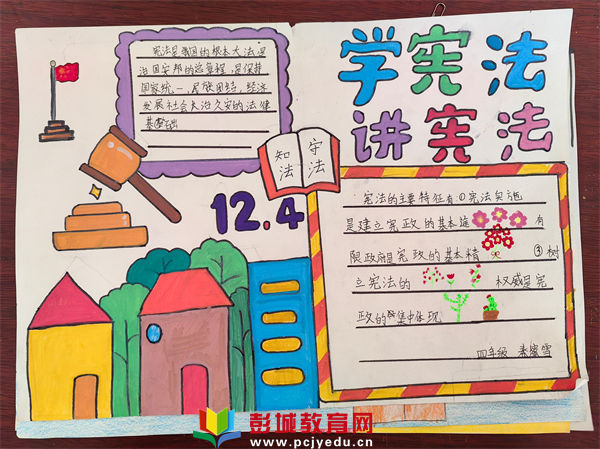 学宪法
讲宪法
宪法是我国的根本大法,是
治国安邦的总章程,是保持
国家统一,民族团结,经济
发展社会长治久安的法律
基础
知法
守法
12.4
宪法的主要特征有①宪法实施
是建立宪政的基本途
有
限政府是宪政的基本精
③树
立宪法的
权威是宪
政的
集中体现
四年级
彭城教育网
www.pcjyedu.cn